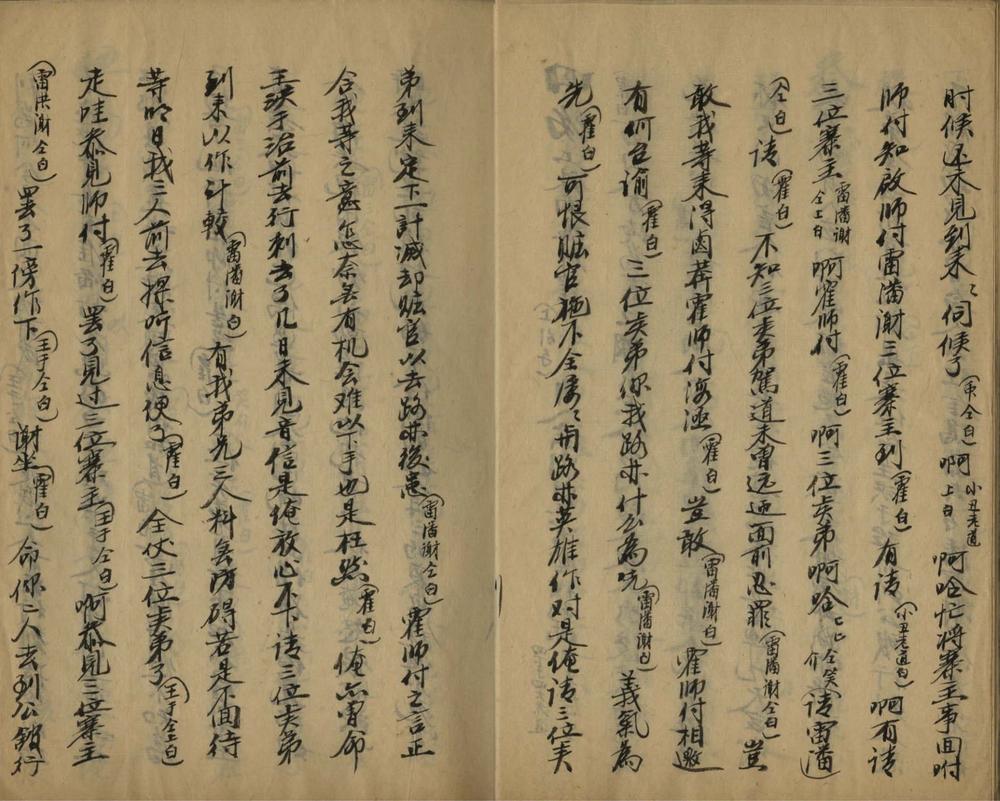 时候还不见到来〻伺候了（宋仝白）啊小丑老道上白啊哈忙将寨主事回咐
师付知啟师付雷潘谢三位寨主到（霍白）有请（小丑老道白）啊有请
三位寨主雷潘谢仝上白啊霍师付（霍白）啊三位贤弟啊哈〻〻仝笑介请雷潘
（仝白）请（霍白）不知三位贤弟驾道未曾远迎面前恕罪（雷潘谢仝白）岂
敢我等来得卤莽霍师付海涵（霍白）岂敢（雷潘谢白）霍师付相邀
有何台谕（霍白）三位贤弟你我路亦什么為先（雷潘谢白）義氣為
先（霍白）可恨赃官施不全屡〻与路亦英雄作对是俺请三位贤
弟到来定下一计滅却赃官以去路亦後患（雷潘谢仝白）霍师付之言正
合我等之意怎奈無有机会难以下手也是枉然（霍白）俺亦曾命
王
于治前去行刺去了几日未見音信是俺放心不下请三位贤弟
到来以作计較（雷潘谢白）有我弟兄三人料無防碍若是不回待
等明日我三人前去探听信息便了（霍白）全仗三位贤弟了（王于仝白）
走哇叅見师付（霍白）罢了見过三位寨主（王于仝白）啊叅見三位寨主
（雷洪谢仝白）罢了一傍作下（王于仝白）谢坐（霍白）命你二人去到公舘行